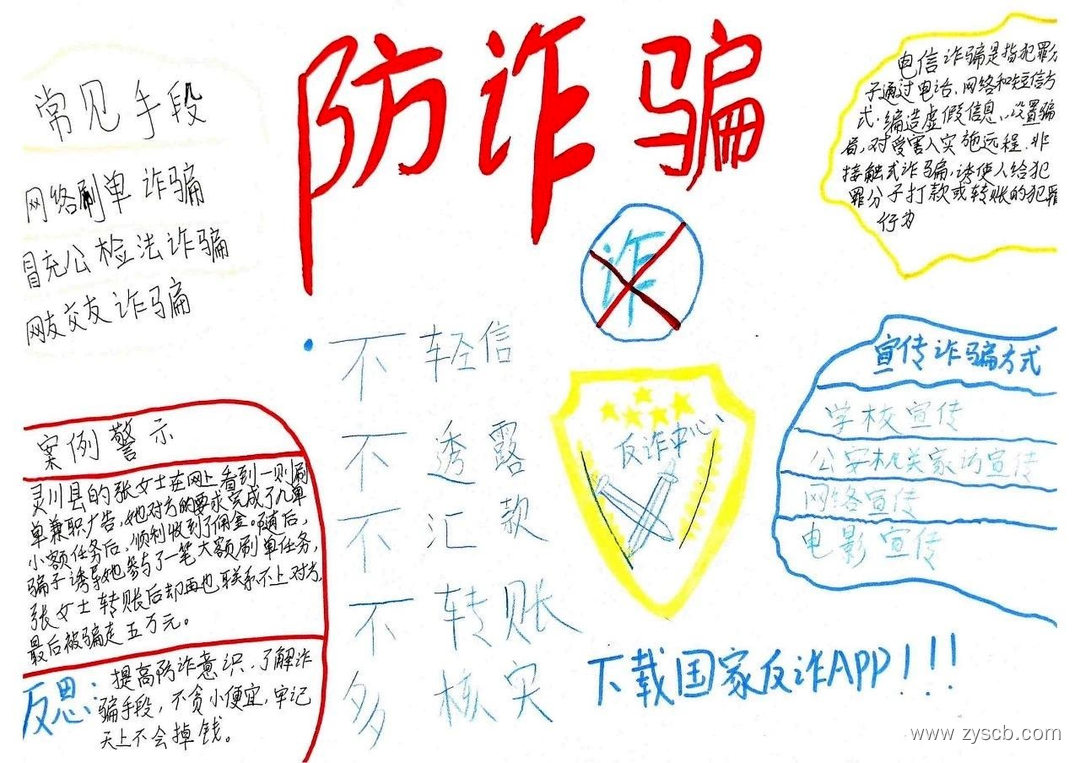 防诈骗
常见手段
网络刷单诈骗
冒充公检法诈骗
网友交友诈骗
电信诈骗是指犯罪分
子通过电话、网络和短信方
式,编造虚假信息,设置骗
局,对受害人实施远程、非
接触式诈骗,诱使人给犯
罪分子打款或转账的犯罪
行为
诈
不轻信
不透露
不汇款
不转账
多核实
反诈中心
宣传诈骗方式
学校宣传
公安机关家访宣传
网络宣传
电影宣传
案例警示
灵川县的张女士在网上看到一则刷
单兼职广告,她对方的要求完成了几单
小额任务后,顺利收到了佣金。随后,
骗子诱导她参与了一笔大额刷单任务,
张女士转账后却再也联系不上对方,
最后被骗走五万元。
反思:提高防诈意识、了解诈
骗手段,不贪小便宜,牢记
天上不会掉钱。
下载国家反诈APP!!!
www.zyscb.com